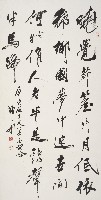 曉覺茅簷片月低依
稀鄉國夢中迷世間
何物催人老半是雞聲
半馬蹄